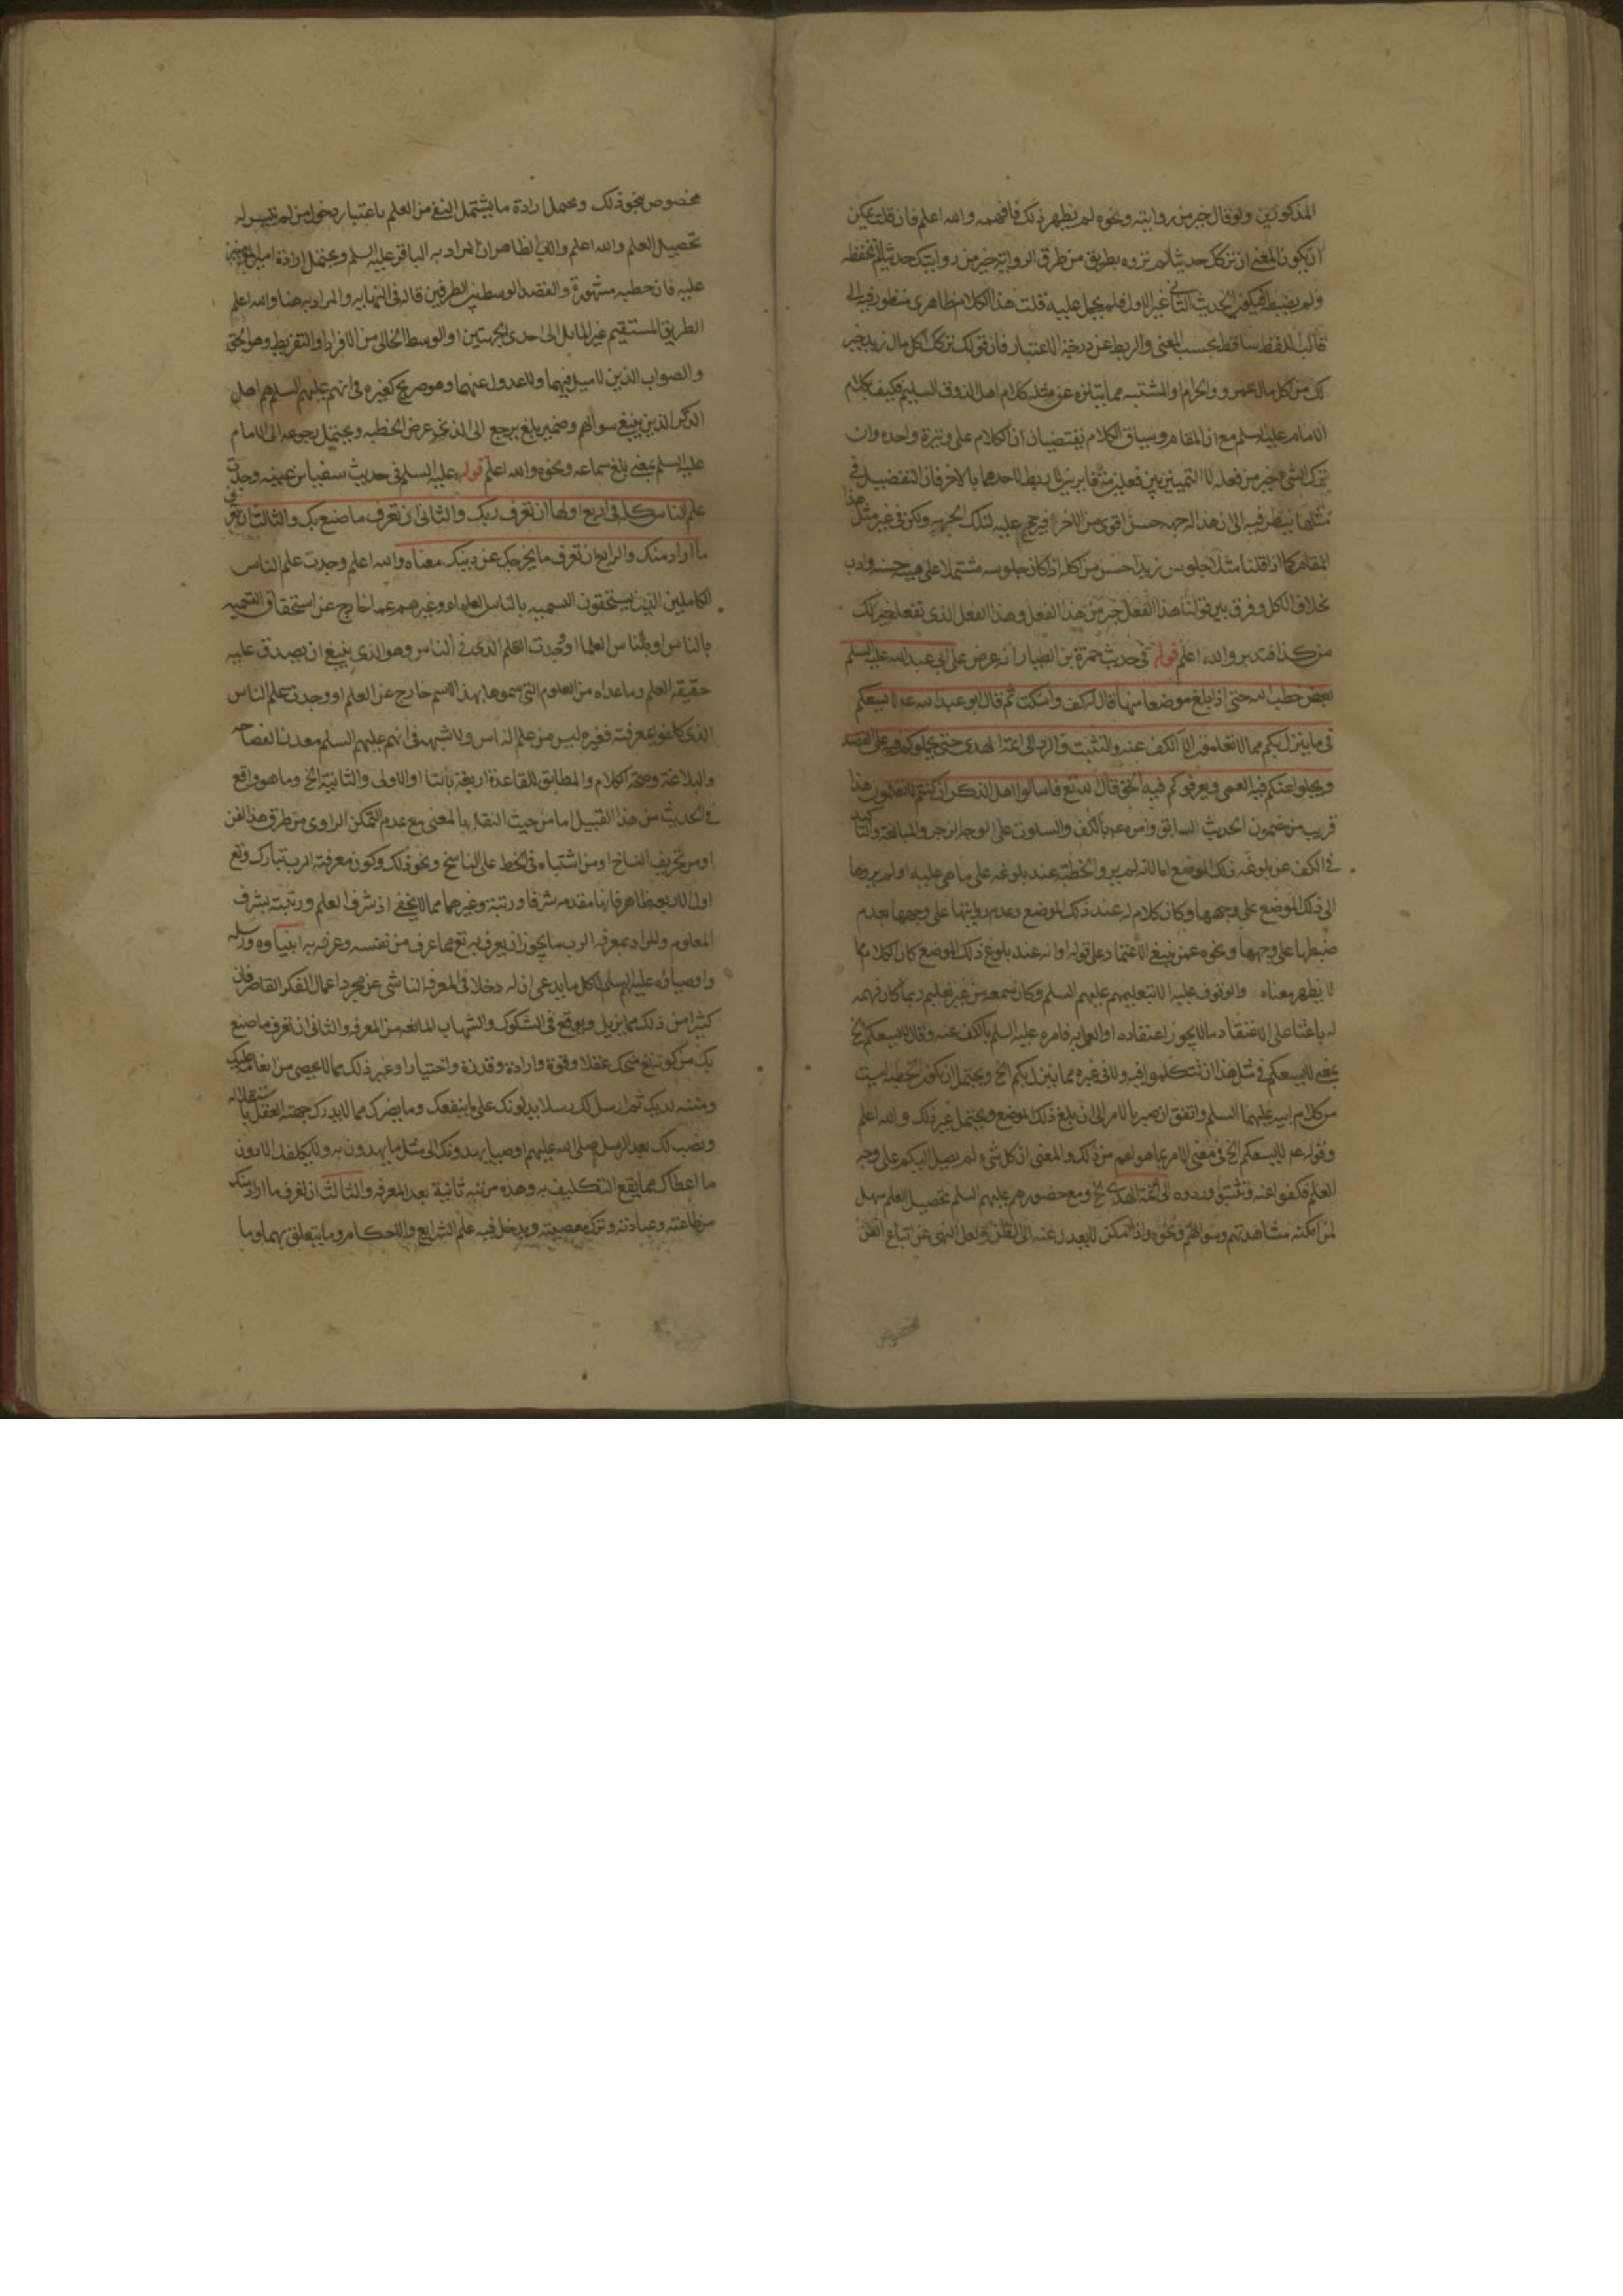 المذكورين ولو قال خير من روايته ونحوه لم يظهر ذلك فافهمه والله اعلم فان قلت يمكن
ان يكون المعنى ان تركك حديثا لم تروه بطريق من طرق الرواية خير من روايتك حديثا لم تحفظه
ولم يضبط فيكون الحديث الثاني غير الاول فلم يحمل عليه قلت هذا الكلام ظاهرى منظور فيه الى
قالب اللفظ ساقط بحسب المعنى والربط عن درجة الاعتبار فان قولك تركك اكل مال زيد خير
لك من اكل مال عمرو والحرام والمشتبه مما يتنزه عن مثله كلام اهل الذوق السليم فكيف بكلام
الامام عليه السلم مع ان المقام وسياق الكلام يقتضيان ان الكلام على وتيرة واحدة وان
ترك الشئ خير من فعله لا التمييز بين فعلين متغايرين لا ربط لاحدهما بالاخر فان التفضيل في
مثلها ينظر فيه الى ان هذا الوجه حسن اقوى من الاخر فيرجح عليه لتلك الجهة ولكن في غير مثل هذا
المقام كما اذا قلنا مثلا جلوس زيد احسن من اكله اذا كان جلوسه مشتملا على هيئة حسنة وادب
بخلاف الاكل وفرق بين قولنا هذا الفعل خير من هذا الفعل وهذا الفعل الذى تفعله خير لك
من كذا فتدبر والله اعلم قوله في حديث حمزة بن الطيار انه عرض على ابي عبد الله عليه السلم
بعض خطب ابيه حتى اذا بلغ موضعا منها قال له كف واسكت ثم قال ابو عبد الله عه لا يسعكم
في ما ينزل بكم مما لا تعلمون الا الكف عنه والتثبت والرد الى ائمة الهدى حتى يحملوكم فيه على القصد
ويجلوا عنكم فيه العمى ويعرفوكم فيه الحق قال الله تع فاسالوا اهل الذكر ان كنتم لا تعلمون هذا
قريب من مضمون الحديث السابق وامره عه بالكف والسكوت على الوجه الزجر والمبالغة والتاكيد
في الكف عن بلوغه ذلك الموضع اما لانه لم يرو الخطبة عند بلوغه على ما هى عليه او لم يروها
الى ذلك الموضع على وجهها وكان كلام له عند ذلك الموضع وعدم روايتها على وجهها بعدم
ضبطها على وجهها ونحوه عمن ينبغي الاعتماد على قوله او انه عند بلوغ ذلك الموضع كان الكلام مما
لا يظهر معناه والوقوف عليه الا بتعليمهم عليهم السلم وكان سمعه من غير تعليم ربما كان فهمه
له باعثا على الاعتقاد ما لا يجوز اعتقاده او العمل به فامره عليه السلم بالكف عنه وقال لا يسعكم الخ
يعني لا يسعكم في مثل هذا ان تتكلموا فيه ولا في غيره مما ينزل بكم الخ ويحتمل ان يكون الخطبة ليست
من كلام ابيه عليهما السلم واتفق ان صبر بالامر الى ان بلغ ذلك الموضع ويحتمل غير ذلك والله اعلم
وقوله عه لا يسعكم الخ في معنى الامر بما هو اعم من ذلك والمعنى ان كل شئ لم يصل اليكم على وجه
العلم فكفوا عنه وتثبتوا وردوه الى ائمة الهدى الخ ومع حضورهم عليهم السلم تحصيل العلم سهل
لمن امكنه مشاهدتهم وسؤالهم ونحوه واذا تمكن لا يعدل عنه الى الظن ولعل النهى عن اتباع الظن
مخصوص
مخصوص بنحو ذلك ويحتمل ارادة ما يشتمل النفع من العلم باعتبار دخول من لم تتيسر له
تحصيل العلم والله اعلم والاب الظاهر ان المراد به الباقر عليه السلم ويحتمل ارادة امير المؤمنين
عليه فان خطبه مشهورة والقصد الوسط بين الطرفين قاله في النهايه والمراد به هنا والله اعلم
الطريق المستقيم غير المايل الى احدى الجهتين او الوسط الخالى من الافراط والتفريط وهو الحق
والصواب الذين لا ميل فيهما ولا عدول عنهما وهو صريح كغيره في انهم عليهم السلم هم اهل
الذكر الذين ينبغي سوالهم وضمير بلغ يرجع الى الذى عرض الخطبه ويحتمل رجوعه الى الامام
عليه السلم بمعنى بلغ سماعه ونحوه والله اعلم قوله عليه السلم في حديث سفيان بن عيينه وجدت
علم الناس كله في اربع اولها ان تعرف ربك والثاني ان تعرف ما صنع بك والثالث ان تعرف
ما اراد منك والرابع ان تعرف ما يخرجك عن دينك معناه والله اعلم وجدت علم الناس
الكاملين الذين يستحقون التسميه بالناس العلماء وغيرهم عما خارج عن استحقاق التسميه
بالناس او بالناس العلما او وجدت العلم الذى في الناس وهو الذى ينبغي ان يصدق عليه
حقيقة العلم وما عداه من العلوم التي سموها بهذا الاسم خارج عن العلم او وجدت علم الناس
الذى كلفوا بمعرفته فغيره ليس من علم الناس ولا شبهه في انهم عليهم السلم معدن الفصاحه
والبلاغة وصحة الكلام والمطابق للقاعدة اربعة بالتا او الاولى والثانية الخ وما هو واقع
في الحديث من هذا القبيل اما من حيث النقل بالمعنى مع عدم التمكن الراوى من طرق هذا الفن
او من تحريف الناسخ او من اشتباه في الخط على الناسخ ونحو ذلك وكون معرفة الرب تبارك وتع
اول الاربعه ظاهر فانها مقدمه شرفا ورتبة وغيرهما مما لا يخفى اذ شرف العلم ورتبته بشرف
المعلوم والمراد بمعرفة الرب ما يجوز ان يعرف به تع مما عرف من نفسه وعرفه به انبياؤه ورسله
واوصياؤه عليهم السلم لا كل ما يدعى ان له دخلا في المعرفه الناشى عن مجرد اعمال الفكر القاصر فان
كثيرا من ذلك مما يزيل ويوقع في الشكوك والشبهات المانعه من المعرفه والثاني ان تعرف ما صنع
بك من كونه تع منحك عقلا وقوة وارادة وقدرة واختيارا وغير ذلك مما لا يحصى من انعامه عليك
ومننه لديك ثم ارسل لك رسلا يدلونك على ما ينفعك وما يضرك مما لا يدرك جهته العقل باستقلاله
ونصب لك بعد الرسل صلى الله عليهم اوصيا يهدونك الى مثل ما يهدون به ولا يكلفك الا دون
ما اعطاك مما يقع التكليف به وهذه مرتبه ثانية بعد المعرفه والثالث ان تعرف ما اراد منك
من طاعته وعبادته وترك معصيته ويدخل فيه علم الشرايع والاحكام وما يتعلق بهما وما